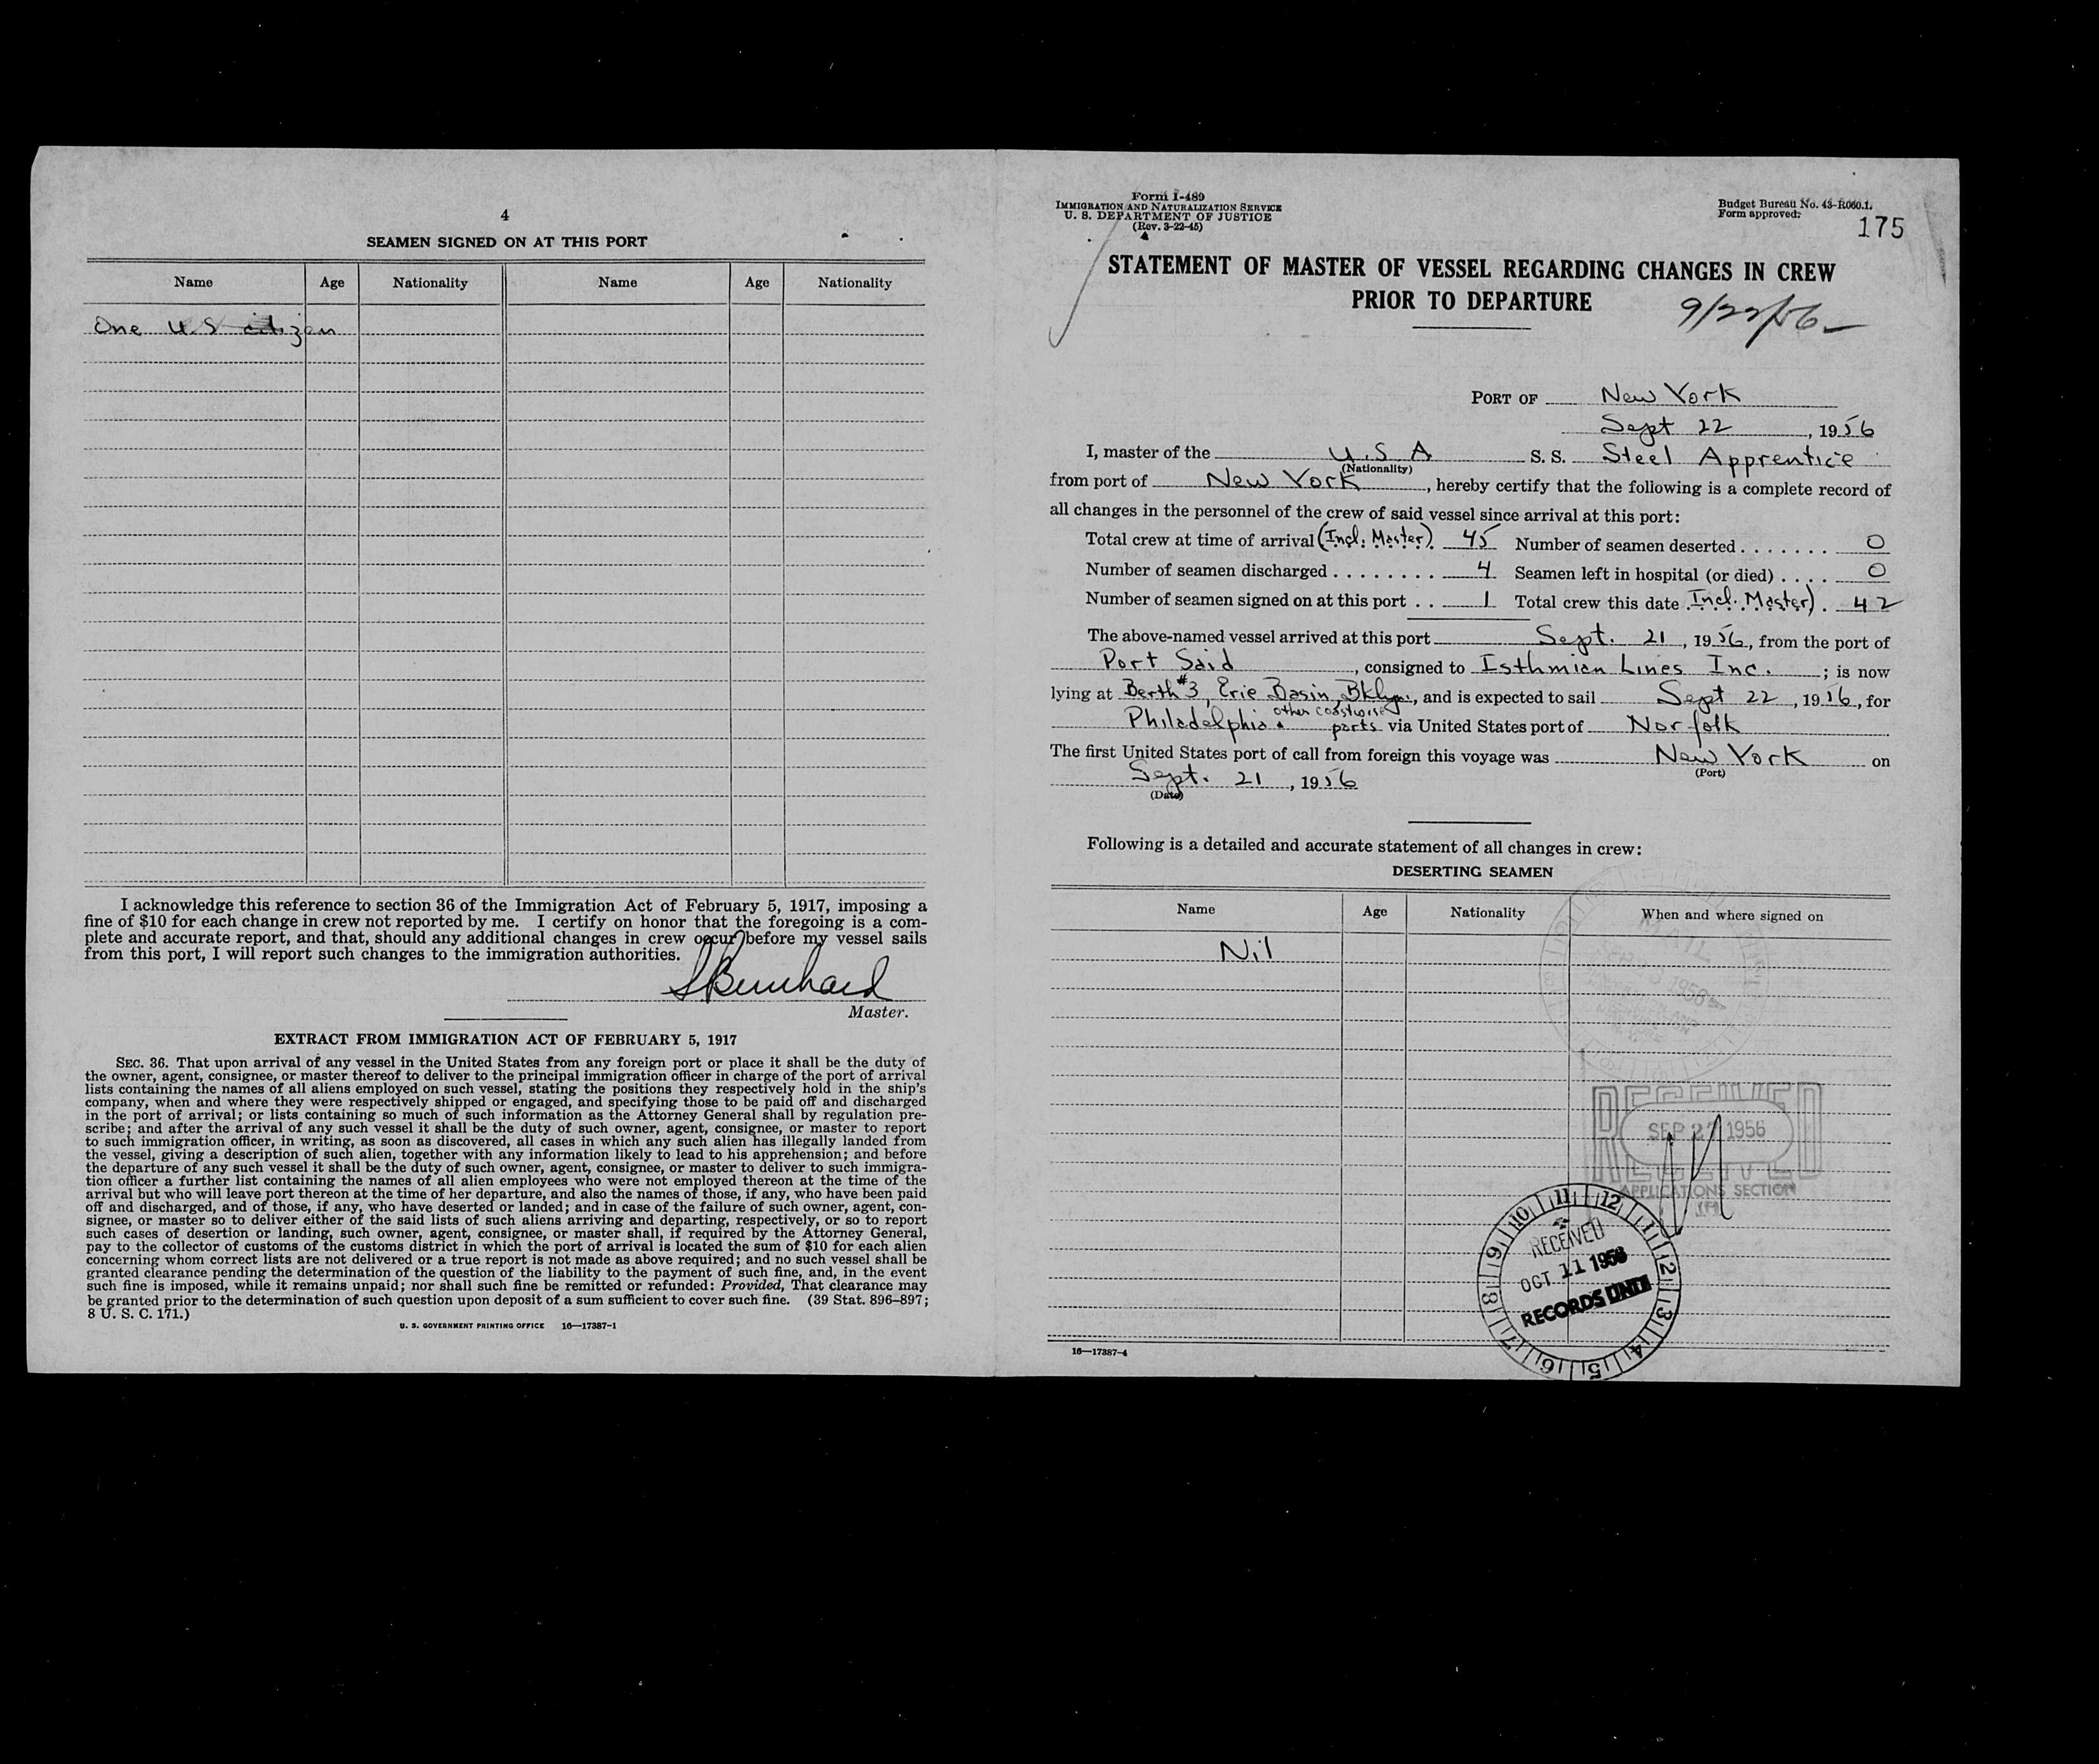 4
SEAMEN SIGNED ON AT THIS PORT
Name Age Nationality Name Age Nationality
One U.S citizen
I acknowledge this reference to section 36 of the Immigration Act of February 5, 1917, imposing a
fine of $10 for each change in crew not reported by me. I certify on honor that the foregoing is a com-
plete and accurate report, and that, should any additional changes in crew occur before my vessel sails
from this port, I will report such changes to the immigration authorities.
Master.
EXTRACT FROM IMMIGRATION ACT OF FEBRUARY 5, 1917
SEC. 36. That upon arrival of any vessel in the United States from any foreign port or place it shall be the duty of
the owner, agent, consignee, or master thereof to deliver to the principal immigration officer in charge of the port of arrival
lists containing the names of all aliens employed on such vessel, stating the positions they respectively hold in the ship's
company, when and where they were respectively shipped or engaged, and specifying those to be paid off and discharged
in the port of arrival; or lists containing so much of such information as the Attorney General shall by regulation pre-
scribe; and after the arrival of any such vessel it shall be the duty of such owner, agent, consignee, or master to report
to such immigration officer, in writing, as soon as discovered, all cases in which any such alien has illegally landed from
the vessel, giving a description of such alien, together with any information likely to lead to his apprehension; and before
the departure of any such vessel it shall be the duty of such owner, agent, consignee, or master to deliver to such immigra-
tion officer a further list containing the names of all alien employees who were not employed thereon at the time of the
arrival but who will leave port thereon at the time of her departure, and also the names of those, if any, who have been paid
off and discharged, and of those, if any, who have deserted or landed; and in case of the failure of such owner, agent, con-
signee, or master so to deliver either of the said lists of such aliens arriving and departing, respectively, or so to report
such cases of desertion or landing, such owner, agent, consignee, or master shall, if required by the Attorney General,
pay to the collector of customs of the customs district in which the port of arrival is located the sum of $10 for each alien
concerning whom correct lists are not delivered or a true report is not made as above required; and no such vessel shall be
granted clearance pending the determination of the question of the liability to the payment of such fine, and, in the event
such fine is imposed, while it remains unpaid; nor shall such fine be remitted or refunded: Provided, That clearance may
be granted prior to the determination of such question upon deposit of a sum sufficient to cover such fine. (39 Stat. 896–897;
8 U. S. C. 171.)
U. S. GOVERNMENT PRINTING OFFICE 16—17387-1
Form I-489
IMMIGRATION AND NATURALIZATION SERVICE
U. S. DEPARTMENT OF JUSTICE
(Rev. 3-22-45)
Budget Bureau No. 43-R060.1.
Form approved.
175
STATEMENT OF MASTER OF VESSEL REGARDING CHANGES IN CREW
PRIOR TO DEPARTURE
9/22/56
PORT OF New York
Sept 22, 1956
I, master of the U.S.A S. S. Steel Apprentice
(Nationality)
from port of New York, hereby certify that the following is a complete record of
all changes in the personnel of the crew of said vessel since arrival at this port:
Total crew at time of arrival (Incl. Master) 45 Number of seamen deserted 0
Number of seamen discharged 4 Seamen left in hospital (or died) 0
Number of seamen signed on at this port 1 Total crew this date Incl. Master) 42
The above-named vessel arrived at this port Sept. 21, 1956, from the port of
Port Said, consigned to Isthmian Lines Inc.; is now
lying at Berth #3, Erie Basin, Bklyn., and is expected to sail Sept 22, 1956, for
Philadelphia other coastwise ports via United States port of Norfolk
The first United States port of call from foreign this voyage was New York on
(Port)
Sept. 21, 1956
(Date)
Following is a detailed and accurate statement of all changes in crew:
DESERTING SEAMEN
Name Age Nationality When and where signed on
Nil
MAIL
RECEIVED
SEP 1956
APPLICATIONS SECTION
11 12 1 2 3 4 5 6 7 8 9 10
RECEIVED
OCT 11 1956
RECORDS UNIT
16—17387-4